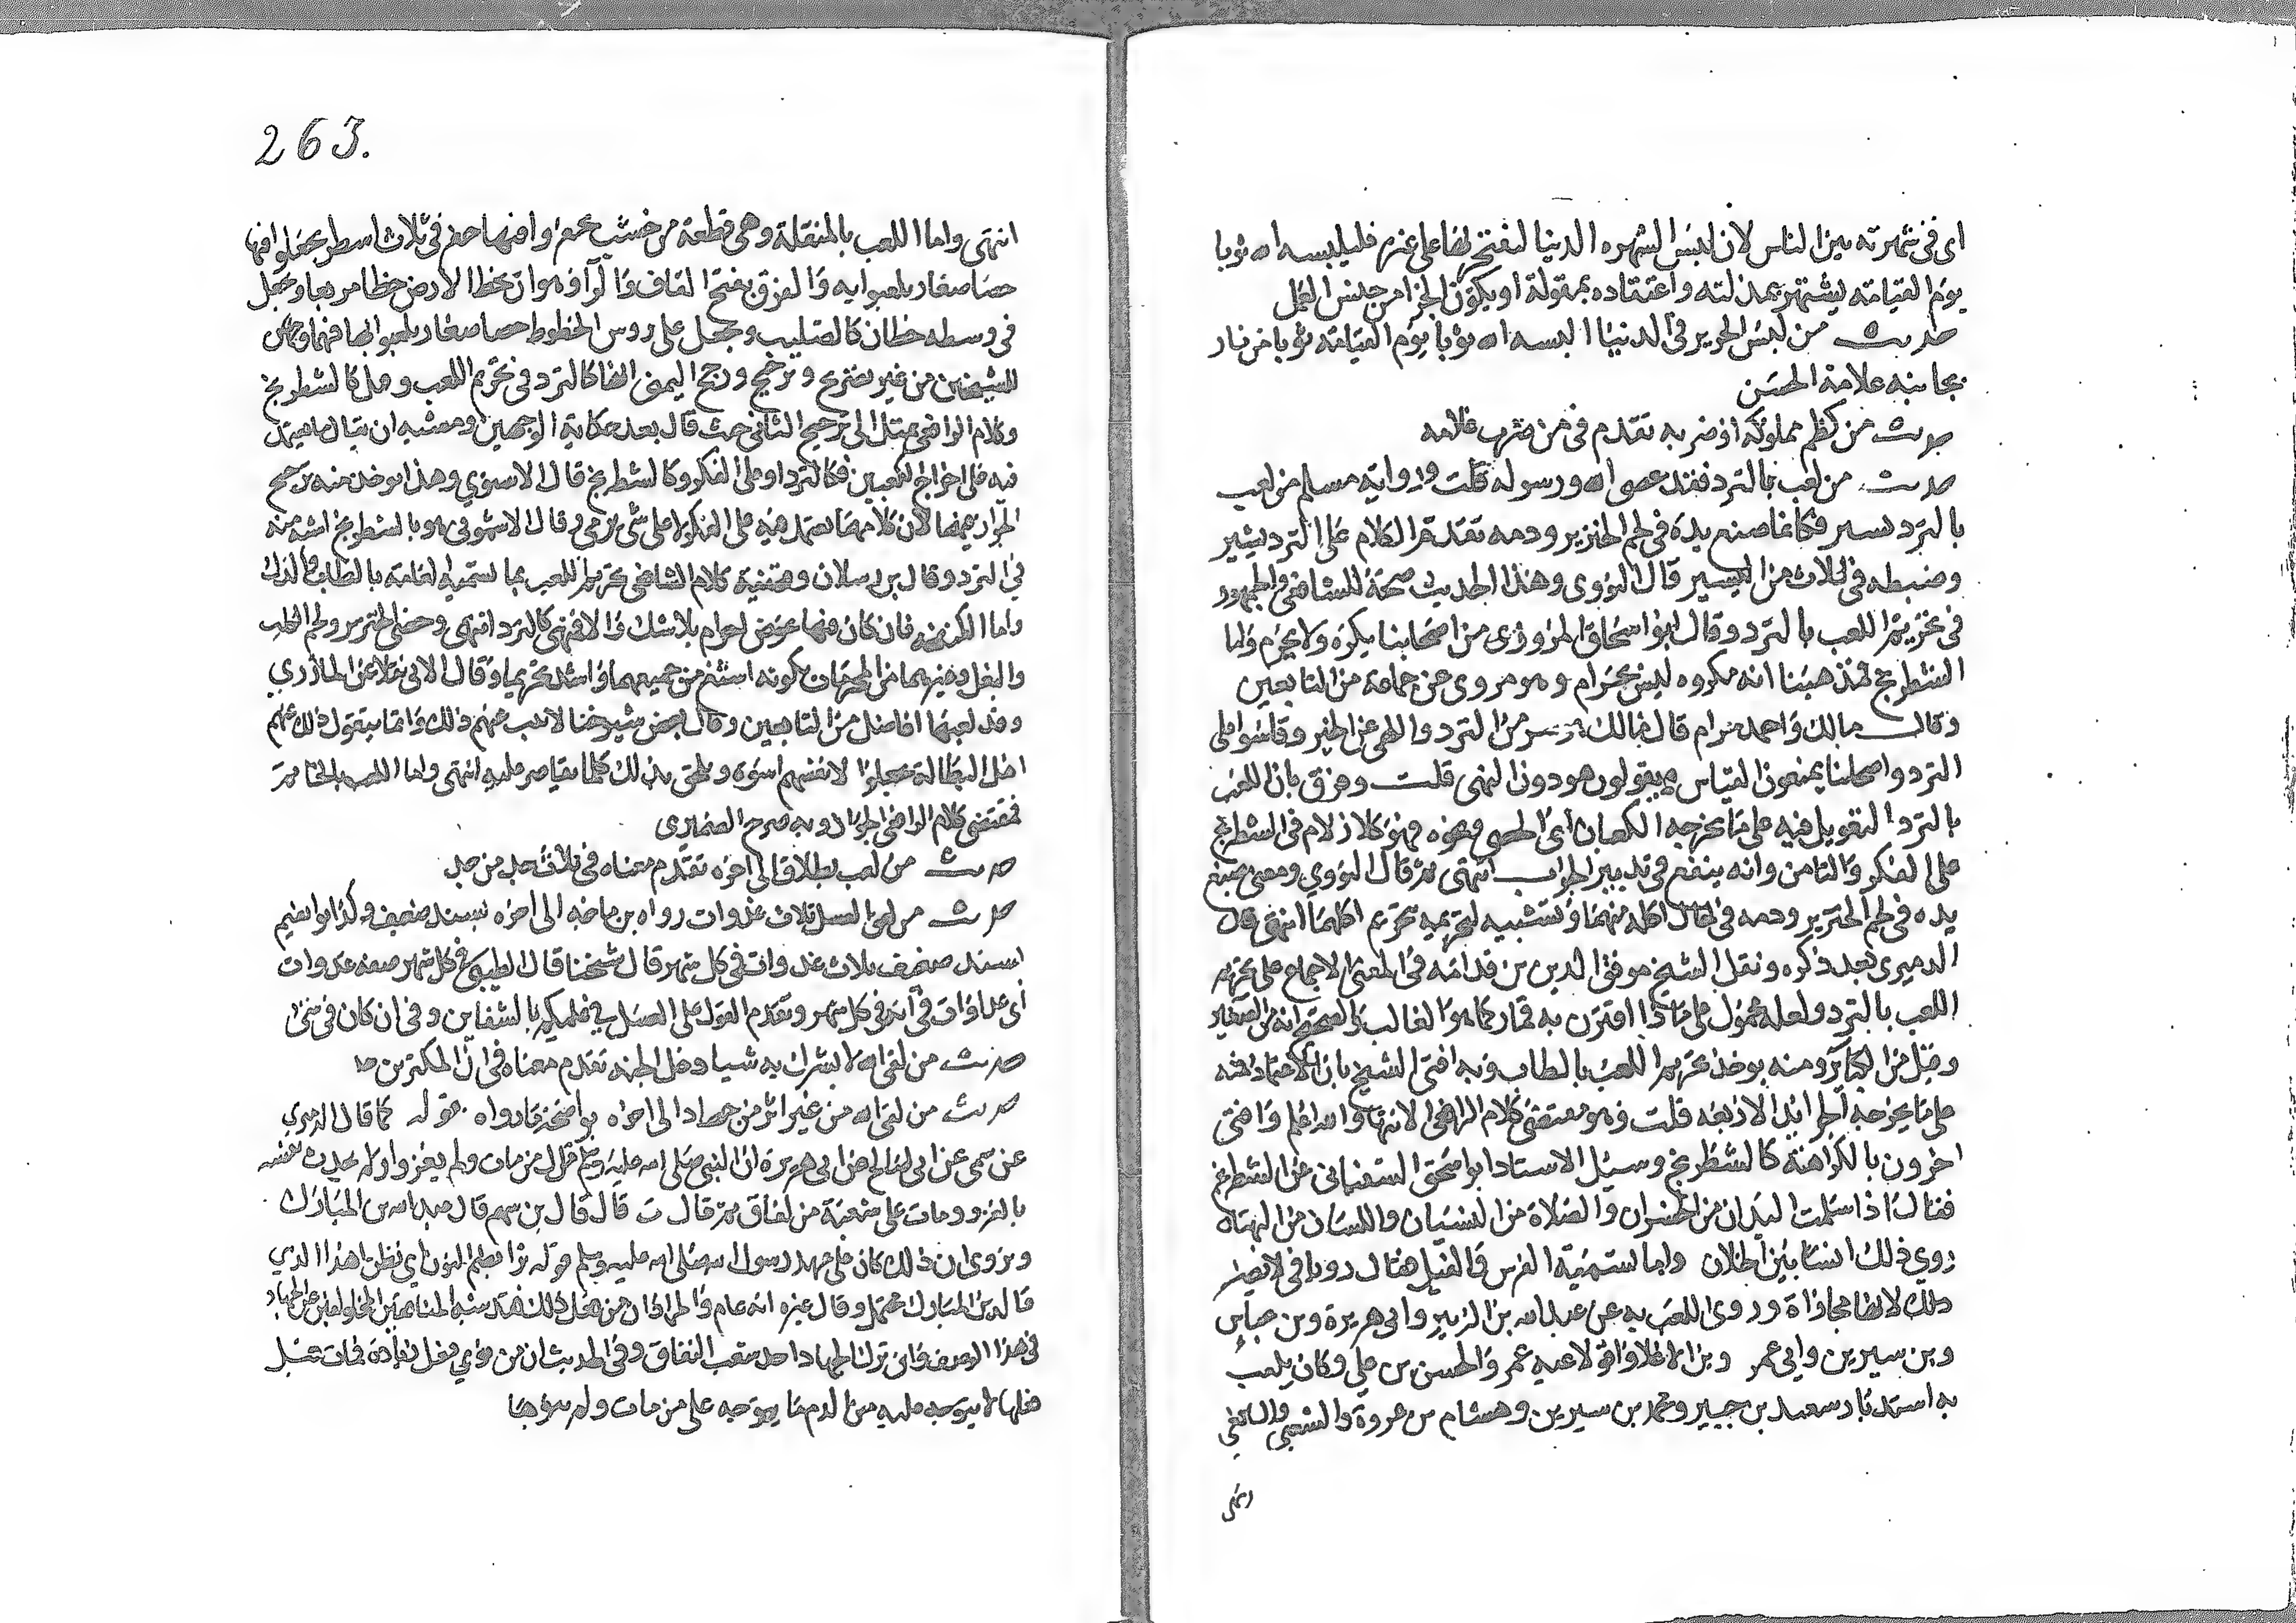 اى فى شهرته بين الناس لان لبس الشهره الدنيا ليفتخر بها على غيره فليلبسه الله ثوبا
يوم القيامة يشتهر بمذلته واعتقاده بمقولة او يكون الجزا من جنس العمل
حديث من لبس الحرير فى الدنيا البسه الله ثوبا يوم القيامة ثوبا من نار
بجانبه علامة الحسن
حديث من لطم مملوكه او ضربه تقدم فى من ضرب غلامه
حديث من لعب بالنرد فقد عصى الله ورسوله قلت ورواية مسلم من لعب
بالنرد سير فكانما صبغ يده فى لحم الخنزير ودمه تقدم الكلام على النرد شير
وضبطه فى ثلاث من الميسر قال النووى وهذا الحديث حجة للشافعى والجمهور
فى تحريم اللعب بالنرد وقال ابو اسحاق المروزى من اصحابنا يكره ولا يحرم واما
الشطرنج فمذهبنا انه مكروه ليس بحرام وهو مروى عن جماعة من التابعين
وقال مالك واحمد حرام قال مالك هو شر من النرد والهى عن الخير وقاسوا على
النرد واصحابنا يمنعون القياس ويقولون هو دونه انتهى قلت وفرق بان اللعب
بالنرد التعويل فيه على ما يخرجه الكعبان اى الحصى ونحوه فهو كالازلام فى الشطرنج
على الفكر والتامل وانه ينفع فى تدبير الحرب انتهى ثم قال النووى ومعنى صبغ
يده فى لحم الخنزير ودمه فى حال اكله منهما وتشبيه لتحريمه بتحريم اكلهما انتهى قال
الدميرى بعد ذكره ونقل الشيخ موفق الدين بن قدامه فى المغنى الاجماع على تحريم
اللعب بالنرد ولعله محمول على ما اذا اقترن به قمار كما هو الغالب والصحيح انه من الصغاير
وقيل من الكباير ومنه يوخذ تحريم اللعب بالطاب وبه افتى الشيخ بان الاعتماد فيه
على ما يخرجه الجرايد الاربعه قلت وهو مقتضى كلام الرافعى لانها والله اعلم وافتى
اخرون بالكراهة كالشطرنج وسيل الاستاد ابو اسحق عن الشطرنج
فقال اذا سلمت اليدان من الخسران والصلاة من النسيان واللسان من البهتان
روى ذلك انسا بين الخلان واما لستمية الفرس والفيل فقال
وروى اللعب به عن عبد الله بن الزبير وابى هريرة وبن عباس
وبن سيرين وابى عمر وبن العلا وانه لاعبه عمر والحسن بن على وكان يلعب
به استدبار سعيد بن جبير ومحمد بن سيرين وهشام بن عروة والشعبى والشافعى
انتهى
263.
انتهى واما اللعب بالمنقلة وهى قطعة من خشب يحفر فيها حفر فى ثلاث اسطر يجعلوا فيها
حصا صغار يلعبوا به والقرق بفتح القاف والرا وهو ان تخط الارض خطا مربعا ويجعل
فى وسطه خطان كالصليب ويجعل على روس الخطوط حصا صغار يلعبوا بها فيها وجهان
للشيخين من غير تصريح وترجيح ورجح اليمنى انها كالنرد فى تحريم اللعب وهل كالشطرنج
وكلام الرافعى يميل الى ترجيح الثانى حيث قال بعد حكاية الوجهين ومشبه ان يقال ما يعتمد
فيه على اخراج الكعبين فكالنرد او على الفكر وكالشطرنج قال الاسنوى وهذا يوخذ منه ترجيح
الجواز فيهما لان كلا منهما يعتمد فيه على الفكر لا على شى يرمى وقال هو بالشطرنج اشبه منه
فى النرد وقال بن رسلان ومقتضى كلام الشافعى تحريم اللعب بما تسميه العامة بالطاب والدك
واما الكنجفه فان كان فيها عوض فحرام بلا شك والا فهى كالنرد انتهى وخص الخنزير ولحم الكلب
والبغل وغيرهما من المحرمات بكونه استقذر من جميعهما واشد تحريما وقال الابى نقلا عن المازرى
وقد لعبها افاضل من التابعين وقال بعض شيوخنا لا عب منهم ذلك وانما يتقول ذلك عليهم
اهل البطالة ليجعلوا لانفسهم اسوة ويلحق بذلك كلما يقامر عليه انتهى واما اللعب بالخاتم
فمقتضى كلام الرافعى الجواز وبه صرح الصيمرى
حديث من لعب بطلاق الى اخره تقدم معناه فى ثلاث جد من جد
حديث من لعق العسل ثلاث غدوات رواه بن ماجه الى اخره بسند ضعيف وكذا ابو نعيم
بسند ضعيف ثلاث غدوات فى كل شهر قال شيخنا قال الطيبى فى كل شهر صفه غدوات
اى غداوات فى اى فى كل شهر وتقدم القول على العسل فى عليكم بالشفاين وفى ان كان فى شى
حديث من لقى الله لا يشرك به شيا دخل الجنه تقدم معناه فى ان المكثرين هم
حديث من لقى الله من غير اثر من جهاد الى اخره قوله كما قال الدميرى
عن سمى عن ابى صالح عن ابى هريرة ان النبى صلى الله عليه وسلم قال من مات ولم يغز ولم يحدث نفسه
بالغزو ومات على شعبة من نفاق ثم قال ت قال قال بن سهم قال عبد الله بن المبارك
ونروى ان ذلك كان على عهد رسول الله صلى الله عليه وسلم قوله نرى بضم النون اى نظن هذا الذى
قاله بن المبارك محتمل وقال غيره انه عام والمراد ان من فعل ذلك فقد شبه المنافقين المتخلفين عن الجهاد
فى هذا الوصف فان ترك الجهاد احد شعب النفاق وفى الحديث ان من نوى فعل عبادة فمات قبل
فعلها لا يتوجه عليه من الذم ما يتوجه على من مات ولم ينوها